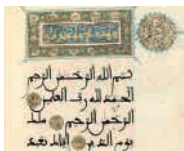 بسم الله الرحمن الرحيم
الحمد لله رب العلمين
الرحمن الرحيم ملك
يوم الدين اياك نعبد